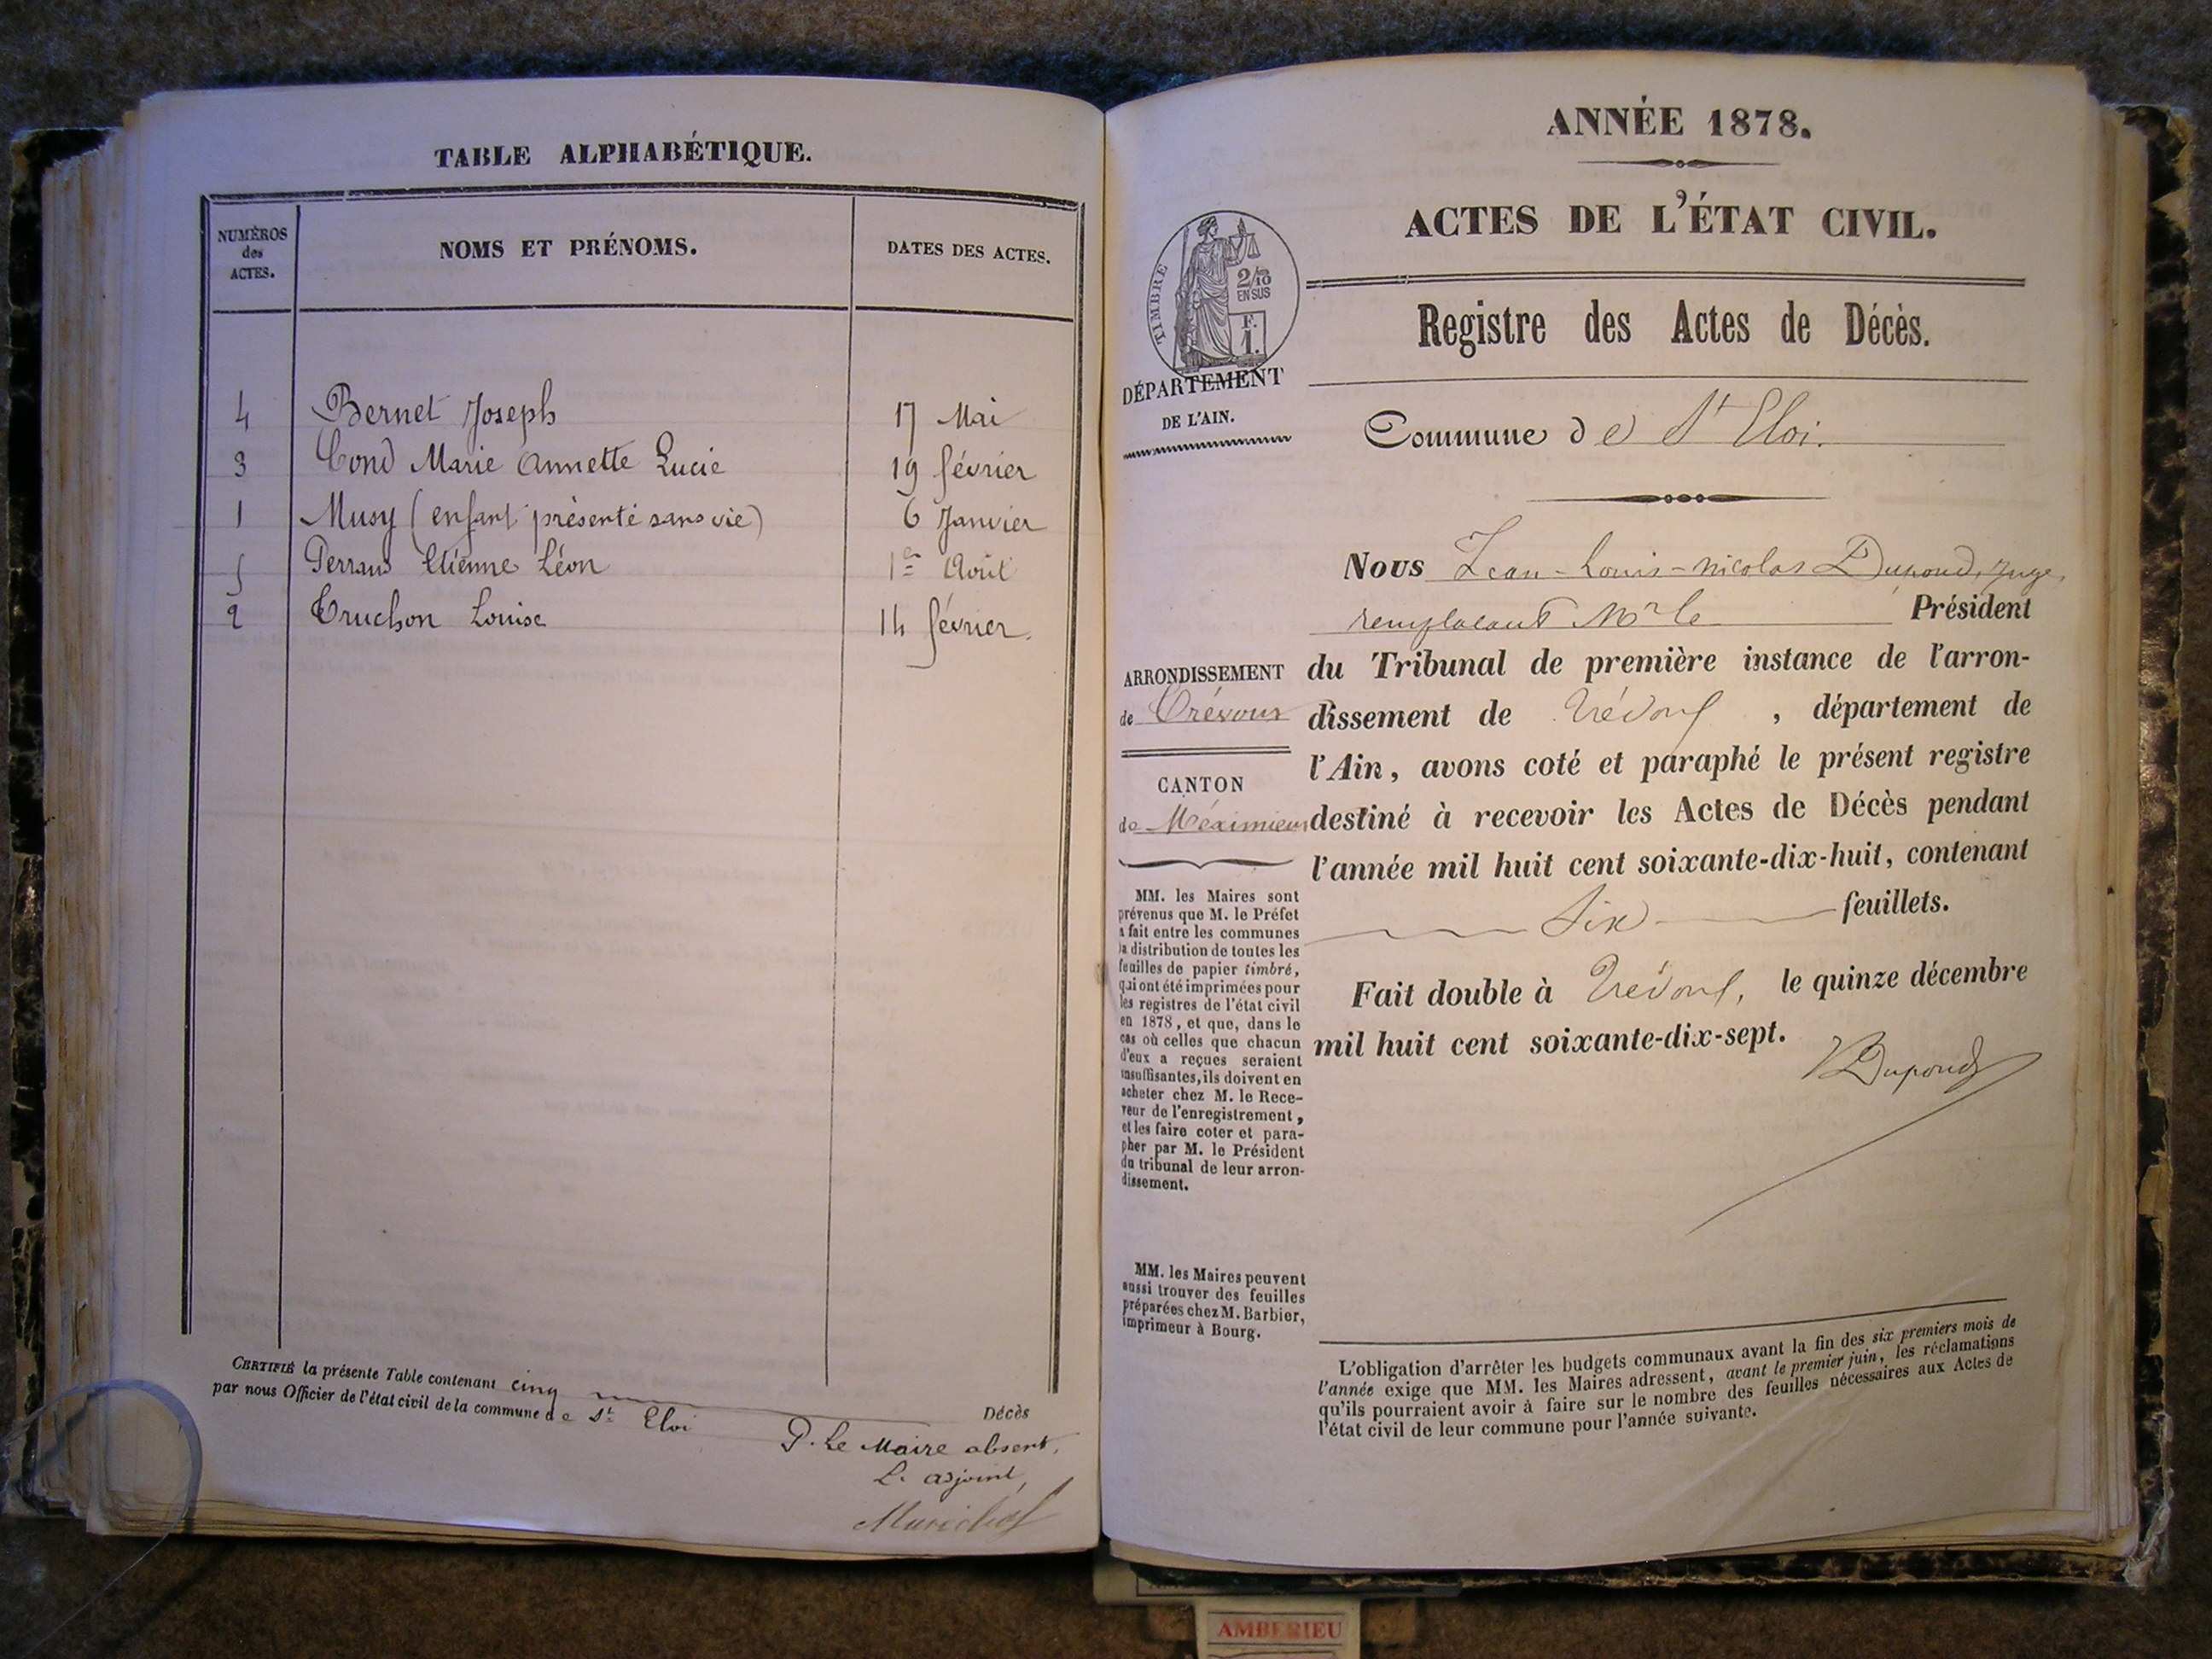 TABLE ALPHABÉTIQUE.
NUMÉROS
des
ACTES.
NOMS ET PRÉNOMS.
DATES DES ACTES.
4 Bernet Joseph 17 Mai
3 Cond Marie Annette Lucie 19 février
1 Musy (enfant présenté sans vie) 6 Janvier
5 Perraud Etienne Léon 1er Août
2 Truchon Louise 14 février.
CERTIFIÉ la présente Table contenant cinq Décès
par nous Officier de l'état civil de la commune de St Eloi
P. Le Maire absent,
L. adjoint,
Maréchal
ANNÉE 1878.
ACTES DE L'ÉTAT CIVIL.
TIMBRE
2/10
EN SUS
F.
1.
DÉPARTEMENT
DE L'AIN.
Registre des Actes de Décès.
Commune de St Eloi.
Nous Jean-Louis-Nicolas Dupond, Juge,
remplaçant Mr le Président
du Tribunal de première instance de l'arron-
dissement de Trévoux, département de
l'Ain, avons coté et paraphé le présent registre
destiné à recevoir les Actes de Décès pendant
l'année mil huit cent soixante-dix-huit, contenant
Six feuillets.
Fait double à Trévoux, le quinze décembre
mil huit cent soixante-dix-sept.
Dupond
ARRONDISSEMENT
de Trévoux
CANTON
de Méximieux
MM. les Maires sont
prévenus que M. le Préfet
a fait entre les communes
la distribution de toutes les
feuilles de papier timbré,
qui ont été imprimées pour
les registres de l'état civil
en 1878, et que, dans le
cas où celles que chacun
d'eux a reçues seraient
insuffisantes, ils doivent en
acheter chez M. le Rece-
veur de l'enregistrement,
et les faire coter et para-
pher par M. le Président
du tribunal de leur arron-
dissement.
MM. les Maires peuvent
aussi trouver des feuilles
préparées chez M. Barbier,
imprimeur à Bourg.
L'obligation d'arrêter les budgets communaux avant la fin des six premiers mois de
l'année exige que MM. les Maires adressent, avant le premier juin, les réclamations
qu'ils pourraient avoir à faire sur le nombre des feuilles nécessaires aux Actes de
l'état civil de leur commune pour l'année suivante.
AMBERIEU